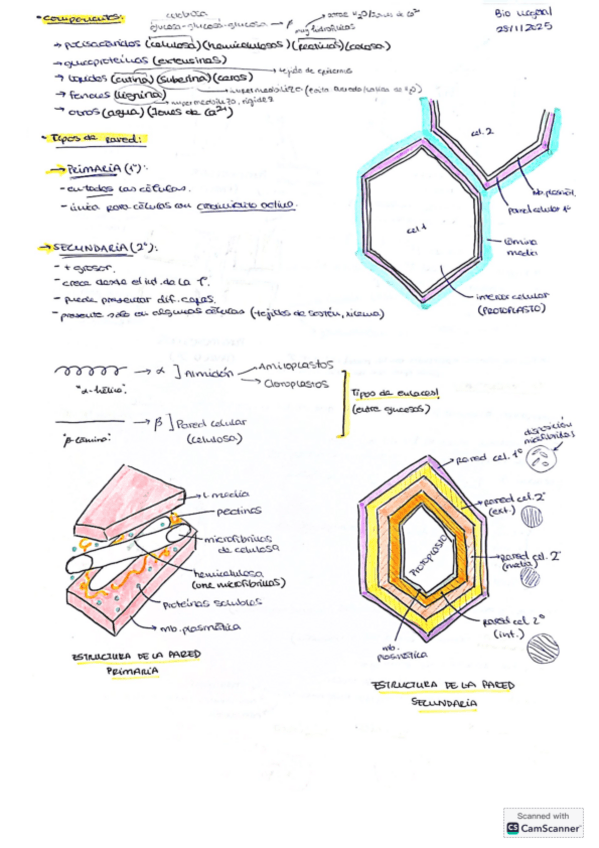 • Componentes:
celulosa
glucosa-glucosa-glucosa → β
muy hidrofílicas
Bio vegetal
28/11/2025
→ polisacáridos (celulosa) (hemicelulosas) (pectinas) (calosa)
→ glucoproteínas (extensinas)
→ tejido de epidermis
→ lípidos (cutina) (suberina) (ceras)
→ fenoles (lignina)
→ impermeabiliza, rigidez
→ otros (agua) (iones de Ca²⁺)
• Tipos de pared:
→ PRIMARIA (1º):
- en todas las células.
- única para células con crecimiento activo.
→ SECUNDARIA (2º):
- + grosor.
- crece desde el int. de la 1º.
- puede presentar dif. capas.
- presente solo en algunas células (tejidos de sostén, xilema)
cel. 2
mb. plasmát.
pared celular 1º
cel 1
lámina
media
interior celular
(PROTOPLASTO)
→ α ] Almidón
Amiloplastos
Cloroplastos
"α-hélice".
Tipos de enlaces!
(entre glucosas)
→ β ] Pared celular
(celulosa)
"β-lámina".
L. media
pectinas
microfibrillas
de celulosa
hemicelulosa
(une microfibrillas)
Proteínas solubles
mb. plasmática
ESTRUCTURA DE LA PARED
PRIMARIA
disposición
microfibrillas
pared cel. 1º
pared cel. 2º
(ext.)
pared cel. 2º
(media)
pared cel. 2º
(int.)
Protoplasto
mb.
plasmática
ESTRUCTURA DE LA PARED
SECUNDARIA
Scanned with
CS CamScanner